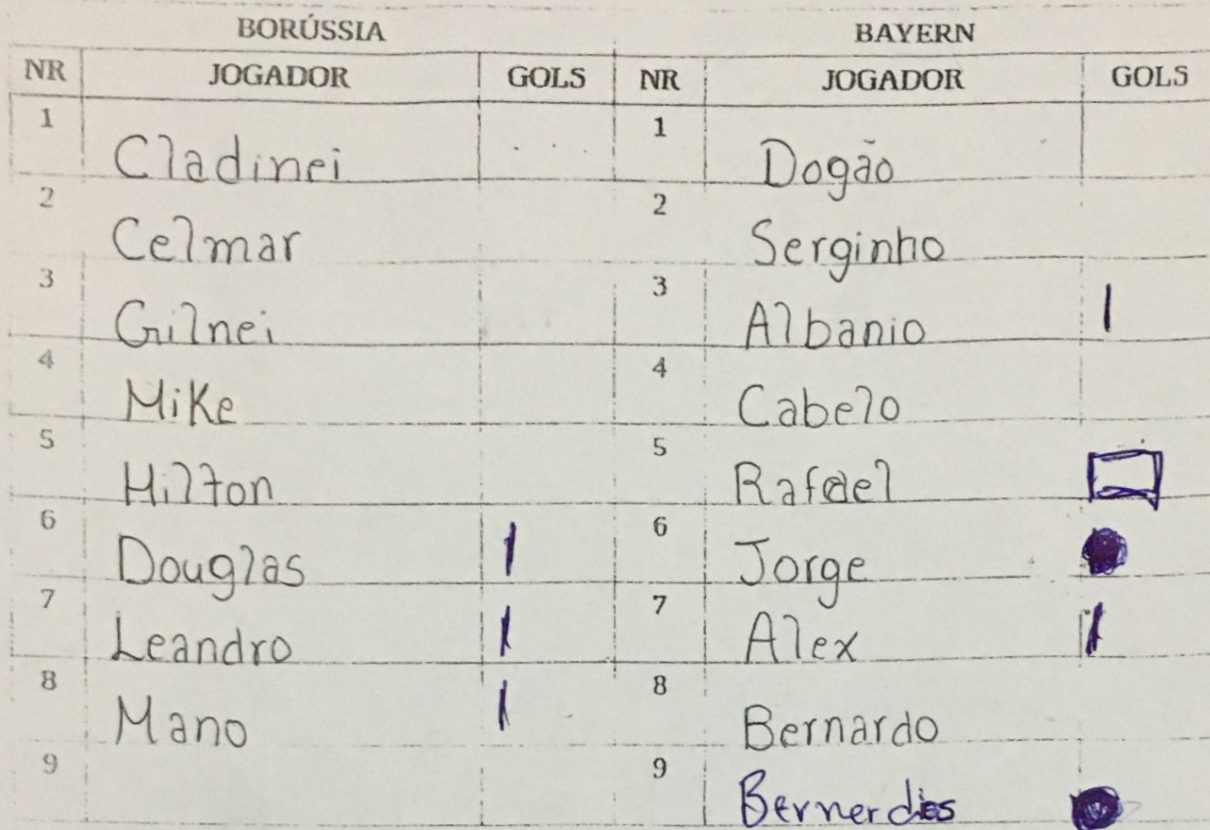 BORÚSSIA BAYERN
NR JOGADOR GOLS NR JOGADOR GOLS
1 Cladinei 1 Dogão
2 Celmar 2 Serginho
3 Gilnei 3 Albanio |
4 Mike 4 Cabelo
5 Hilton 5 Rafael
6 Douglas | 6 Jorge
7 Leandro | 7 Alex |
8 Mano | 8 Bernardo
9 9